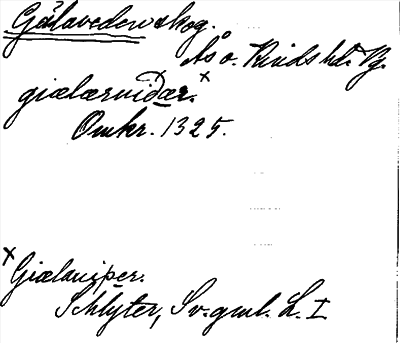 Gälavedenskog.
Ås o. Kinds hd. Vg.
giælærviðær. x
Omkr. 1325.
x Giælaviþer.
Schlyter, Sv. gml. L. I